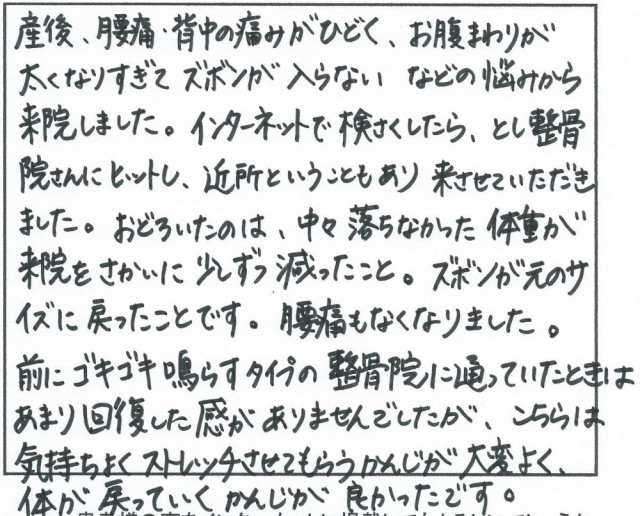 産後、腰痛・背中の痛みがひどく、お腹まわりが
太くなりすぎてズボンが入らない などの悩みから
来院しました。インターネットで検さくしたら、とし整骨
院さんにヒットし、近所ということもあり 来させていただき
ました。おどろいたのは、中々落ちなかった体重が
来院をさかいに少しずつ減ったこと。ズボンが元のサ
イズに戻ったことです。腰痛もなくなりました。
前にゴキゴキ鳴らすタイプの整骨院に通っていたときは
あまり回復した感がありませんでしたが、こちらは
気持ちよくストレッチさせてもらうかんじが大変よく、
体が戻っていくかんじが良かったです。